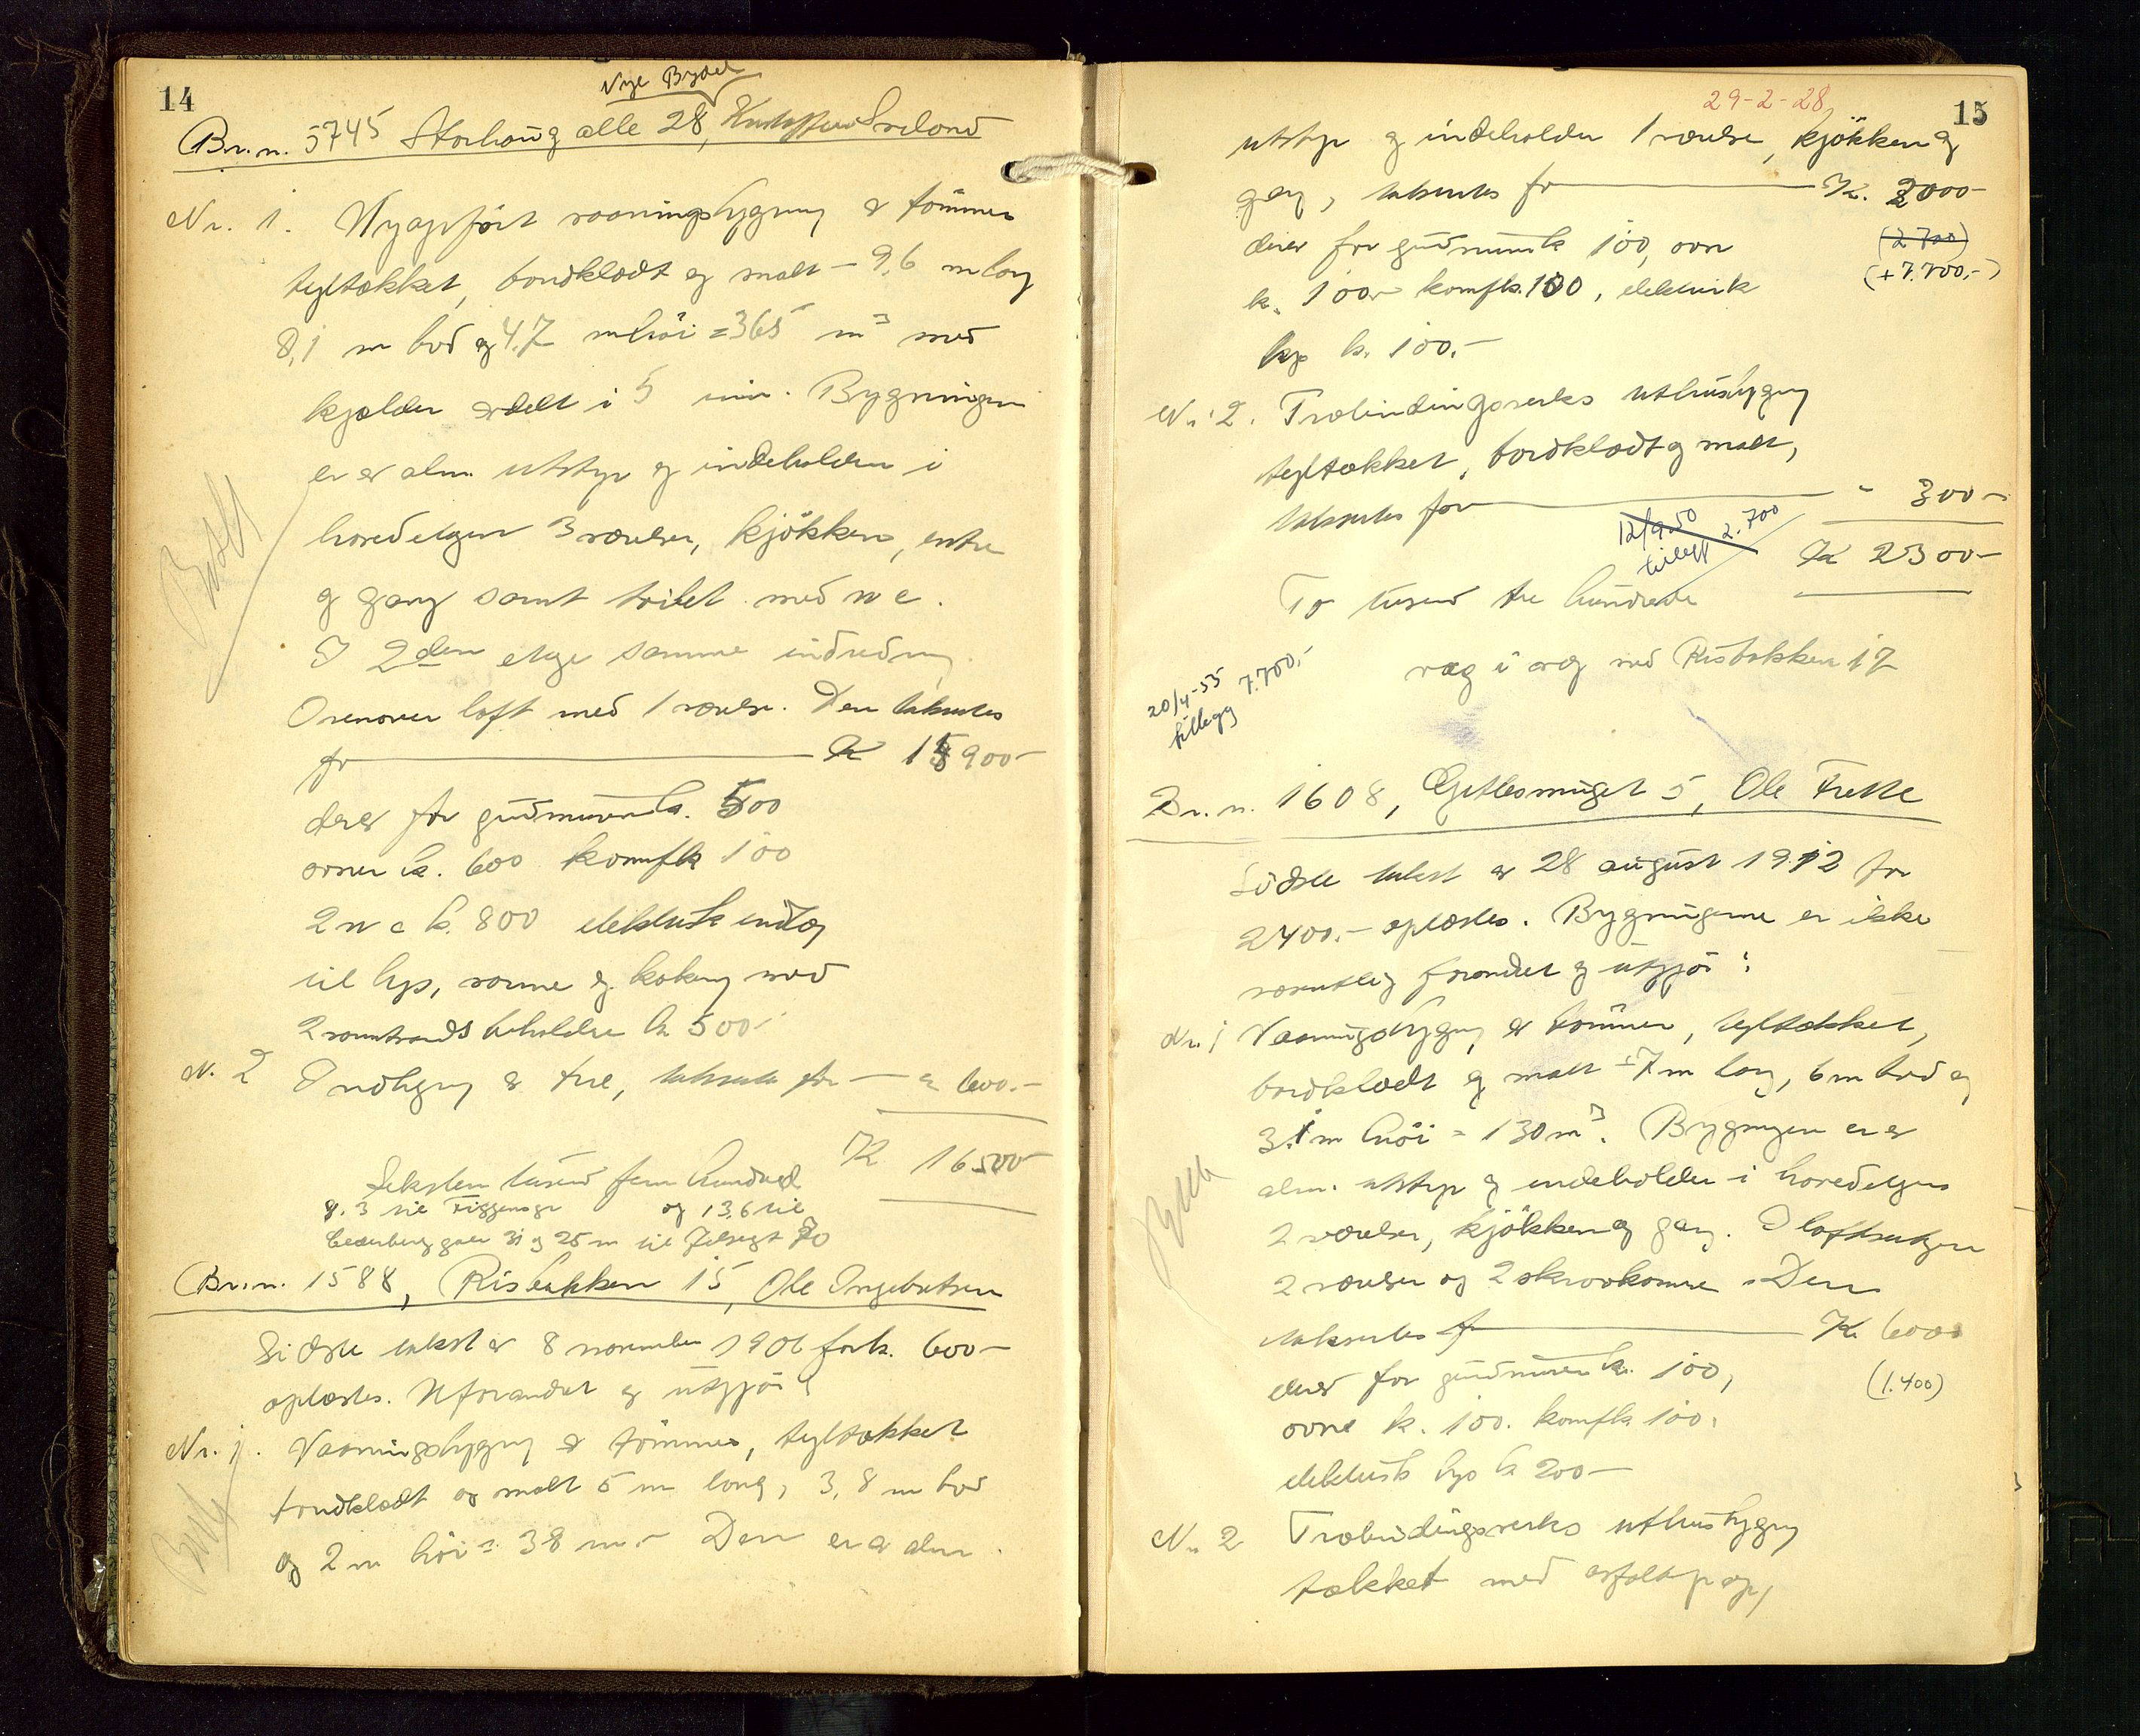 14
Nye Bydel
Br.n. 5745 Storhaug alle 28, Sveland
Nr. 1. Nyopført vaaningsbygning av tömmer
tegltækket, bordklædt og malt - 9,6 m lang
8,1 m bred og 4,7 m höi = 365 m³ med
kjælder avdelt i 5 rum. Bygningen
er av alm. utstyr og indeholder i
hovedetagen 3 værelser, kjökken, entre
og gang samt toilet med w c.
I 2den etage samme indredning
Ovenover loft med 1 værelse. Den takseres
for K 15900-
derav for grundmuren k. 500
ovner k. 600 komf k 100
2 w c k. 800 elektrisk indlæg
til lys, varme og kokning med
2 varmtvandsbeholdere k 500-
N. 2 av træ, takseres for - " 600.-
K 16500-
Seksten tusend fem hundred
9.3 til og 13,6 til
31 og 25 m til 70
Br.n. 1588, Risbakken 15, Ole Ingebretsen
Sidste takst av 8 november 1906 for k. 600-
oplæstes. Uforandret og utgjör:
Nr. 1. Vaaningsbygning av tömmer, tegltækket
bordklædt og malt 5 m lang, 3,8 m bred
og 2 m höi = 38 m³ - Den er av alm.
29-2-28
15
utstyr og indeholder 1 værelse, kjökken og
gang, takseres for K. 2000-
derav for grundmur k 100, ovn
k. 100 - komf k. 100, elektrisk
lys k. 100.-
(2700)
(+7.700,-)
Nr. 2. Træbindingsverks uthusbygning
tegltækket, bordklædt og malt,
takseres for " 300-
12/9 50 2.700
tillegg
K 2300-
To tusend tre hundrede
væg i væg med Risbakken 17
20/4-55 7.700,-
tillegg
Br.n. 1608, 5, Ole Frette
Sidste takst av 28 august 1912 for
2400.- oplæstes. Bygningerne er ikke
væsentlig forandret og utgjör:
Nr. 1 Vaaningsbygning av tömmer, tegltækket,
bordklædt og malt = 7 m lang, 6 m bred og
3.1 m höi = 130 m³. Bygningen er av
alm. utstyr og indeholder i hovedetagen
2 værelser, kjökken og gang. I loftsetagen
2 værelser og 2 skraakammer. Den
takseres for K. 6000
derav for grundmuren k. 100,
(1.400)
ovne k. 100. komf k 100.
elektrisk lys k 200-
Nr. 2 Træbindingsverks uthusbygning
tækket med asfaltpap,